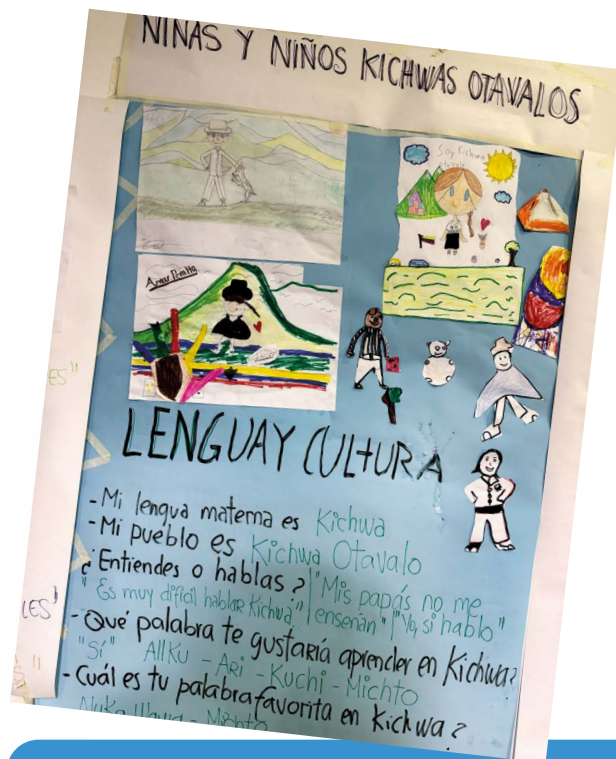 NIÑAS Y NIÑOS KICHWAS OTAVALOS
Soy Kichwa
Otavalo
ES"
LENGUA Y CULTURA
- Mi lengua materna es Kichwa
- Mi pueblo es Kichwa Otavalo
¿Entiendes o hablas? "Mis papás no me
"Es muy difícil hablar Kichwa" enseñan" "Yo, si hablo"
LES"
- Qué palabra te gustaría aprender en Kichwa?
"Sí" Allku - Ari - Kuchi - Michto
- Cuál es tu palabra favorita en Kichwa?
Ñuka Wawa - Michto